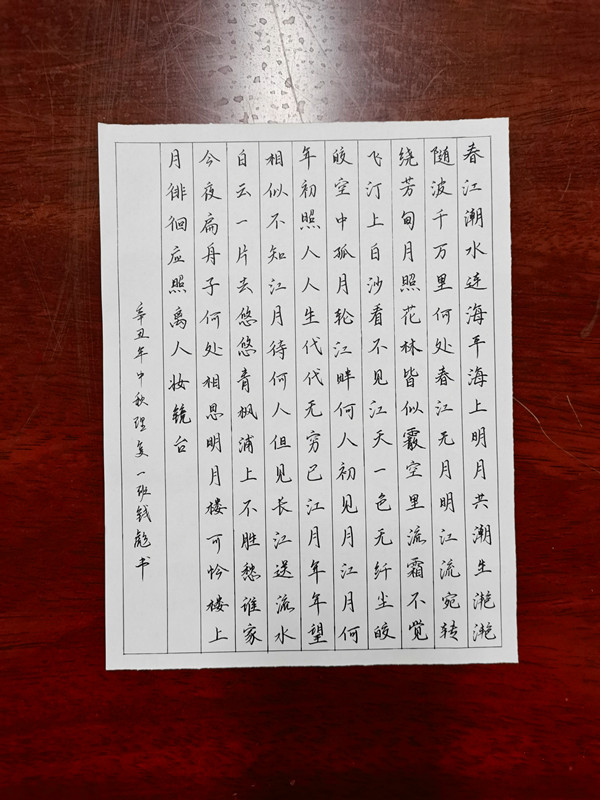 春江潮水连海平海上明月共潮生滟滟
随波千万里何处春江无月明江流宛转
绕芳甸月照花林皆似霰空里流霜不觉
飞汀上白沙看不见江天一色无纤尘皎
皎空中孤月轮江畔何人初见月江月何
年初照人人生代代无穷已江月年年望
相似不知江月待何人但见长江送流水
白云一片去悠悠青枫浦上不胜愁谁家
今夜扁舟子何处相思明月楼可怜楼上
月徘徊应照离人妆镜台
辛丑年中秋一班钱彪书